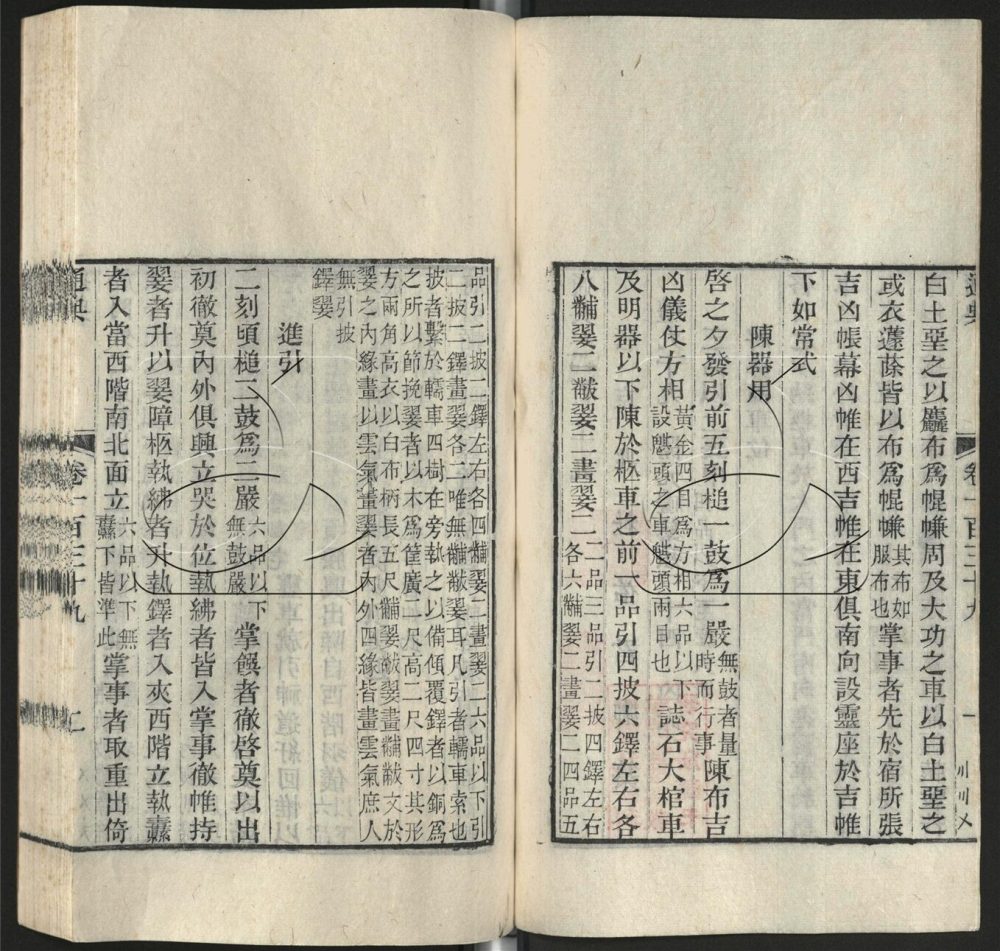 白土堊之以麤布爲幰㡘周及大功之車以白土堊之
或衣蘧蒢皆以布爲幰㡘其布如服布也掌事者先於宿所張
吉凶帳幕凶帷在西吉帷在東俱南向設靈座於吉帷
下如常式
陳器用
啓之夕發引前五刻槌一鼓爲一嚴無鼓者量時而行事陳布吉
凶儀仗方相黃金四目爲方相六品以下設魌頭之車魌頭兩目也誌石大棺車
及明器以下陳於柩車之前一品引四披六鐸左右各
八黼翣二黻翣二畫翣二二品三品引二披四鐸左右各六黼翣二畫翣二四品五
品引二披二鐸左右各四黼翣二畫翣二六品以下引
二披二鐸畫翣各二唯無黼黻翣耳凡引者轜車索也
披者繫於轜車四樹在旁執之以備傾覆鐸者以銅爲
之所以節挽翣者以木爲筐廣二尺高二尺四寸其形
方兩角高衣以白布柄長五尺黼翣黻翣畫黼黻文於
翣之內緣畫以雲氣畫翣者內外四緣皆畫雲氣庶人
無引披鐸翣
進引
二刻頃槌二鼓爲二嚴六品以下無鼓嚴掌饌者徹啓奠以出
初徹奠內外俱興立哭於位執紼者皆入掌事徹帷持
翣者升以翣障柩執紼者升執鐸者入夾西階立執纛
者入當西階南北面立六品以下無纛下皆準此掌事者取重出倚
通典
卷一百三十九